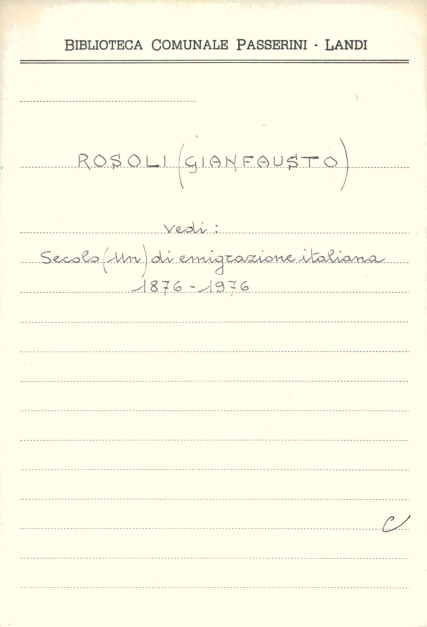 BIBLIOTECA COMUNALE PASSERINI - LANDI
ROSOLI (GIANFAUSTO)
vedi:
Secolo (Un) di emigrazione italiana
1876-1976
C